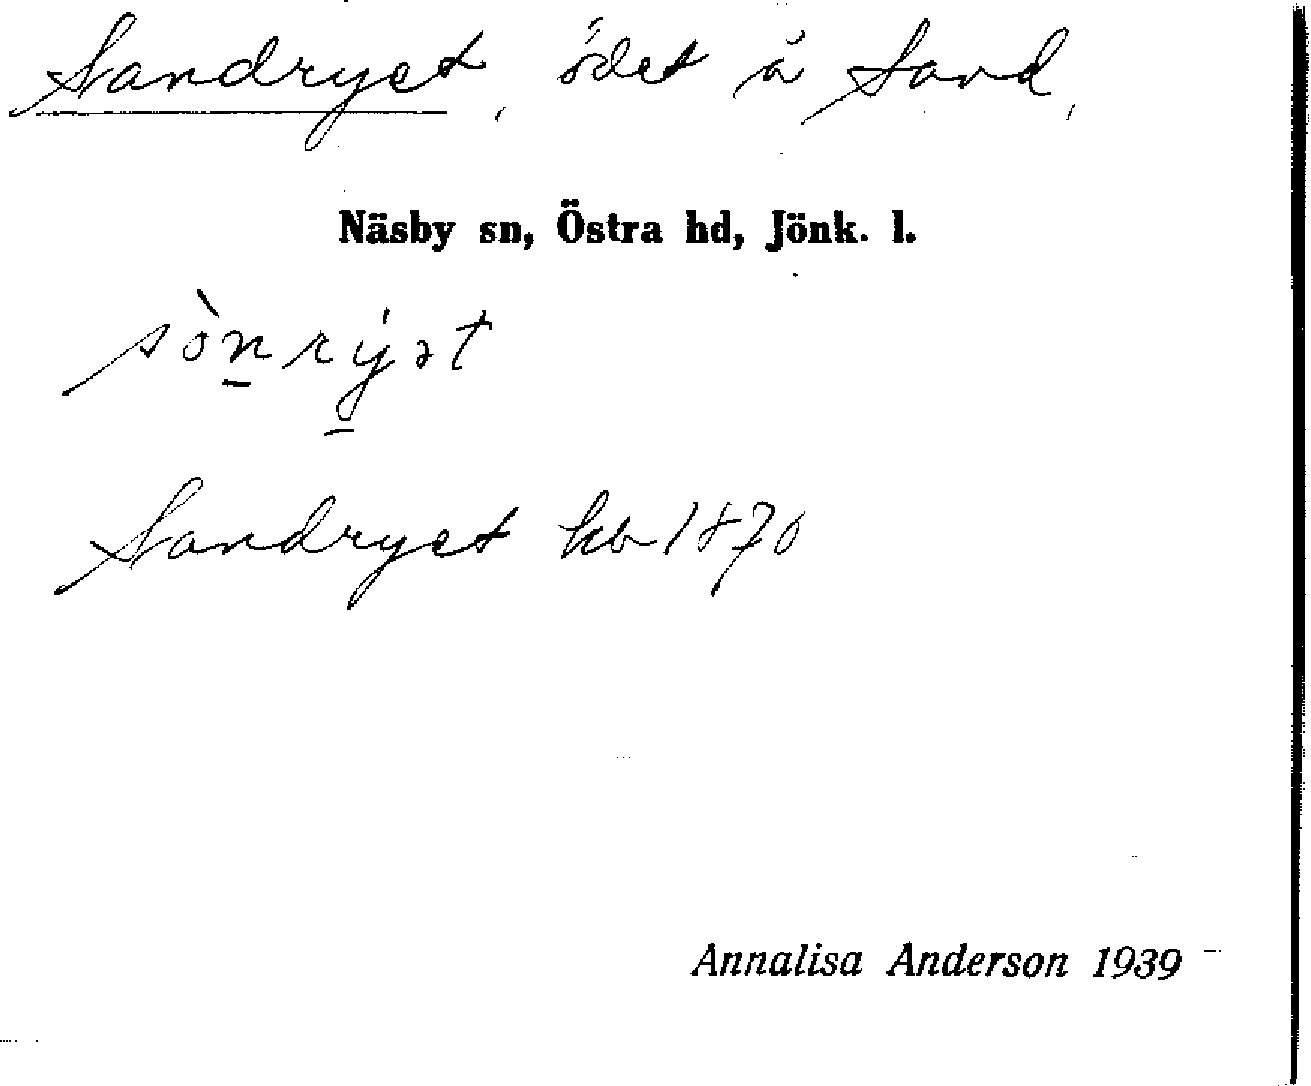 Sandryet, ödet å Sand,
Näsby sn, Östra hd, Jönk. l.
sònrýət
Sandryet hb 1870
Annalisa Anderson 1939